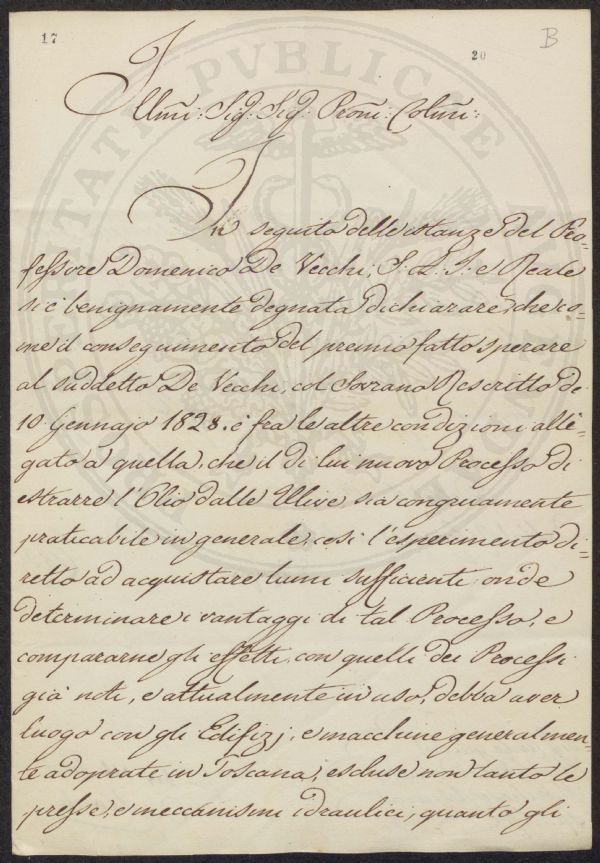 17
20
B
Illmi: Sig: Sig: Proni: Colmi:
In seguito delle istanze del Pro=
fessore Domenico De Vecchi, S. A. I. e Reale
si è benignamente degnata dichiarare, che co=
me il conseguimento del premio fatto sperare
al suddetto De Vecchi, col Sovrano Rescritto de
10. Gennajo 1828. è fra le altre condizioni alle=
gato a quella, che il di lui nuovo Processo di
estrarre l'Olio dalle Ulive sia congruamente
praticabile in generale, così l'esperimento di=
retto ad acquistare lumi sufficienti onde
determinare i vantaggi di tal Processo, e
compararne gli effetti con quelli dei Processi
già noti, e attualmente in uso, debba aver
luogo con gli Edifizj, e macchine generalmen=
te adoprate in Toscana, escluse non tanto le
presse, e meccanismi idraulici, quanto gli
PROSPERITATI PVBLICAE